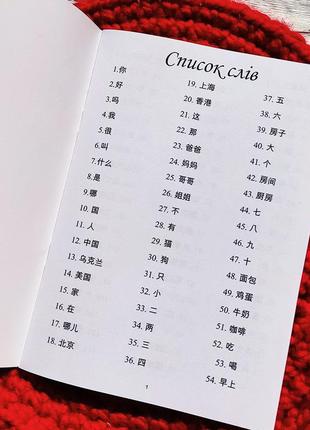 Список слів
1.你
2.好
3.吗
4.我
5.很
6.叫
7.什么
8.是
9.哪
10. 国
11. 人
12. 中国
13. 乌克兰
14. 美国
15. 家
16. 在
17. 哪儿
18. 北京
19. 上海
20. 香港
21. 这
22. 那
23. 爸爸
24. 妈妈
25. 哥哥
26. 姐姐
27. 不
28. 有
29. 猫
30. 狗
31. 只
32. 小
33. 二
34. 两
35. 三
36. 四
37. 五
38. 六
39. 房子
40. 大
41. 个
42. 房间
43. 厨房
44. 七
45. 八
46. 九
47. 十
48. 面包
49. 鸡蛋
50. 牛奶
51. 咖啡
52. 吃
53. 喝
54. 早上
1